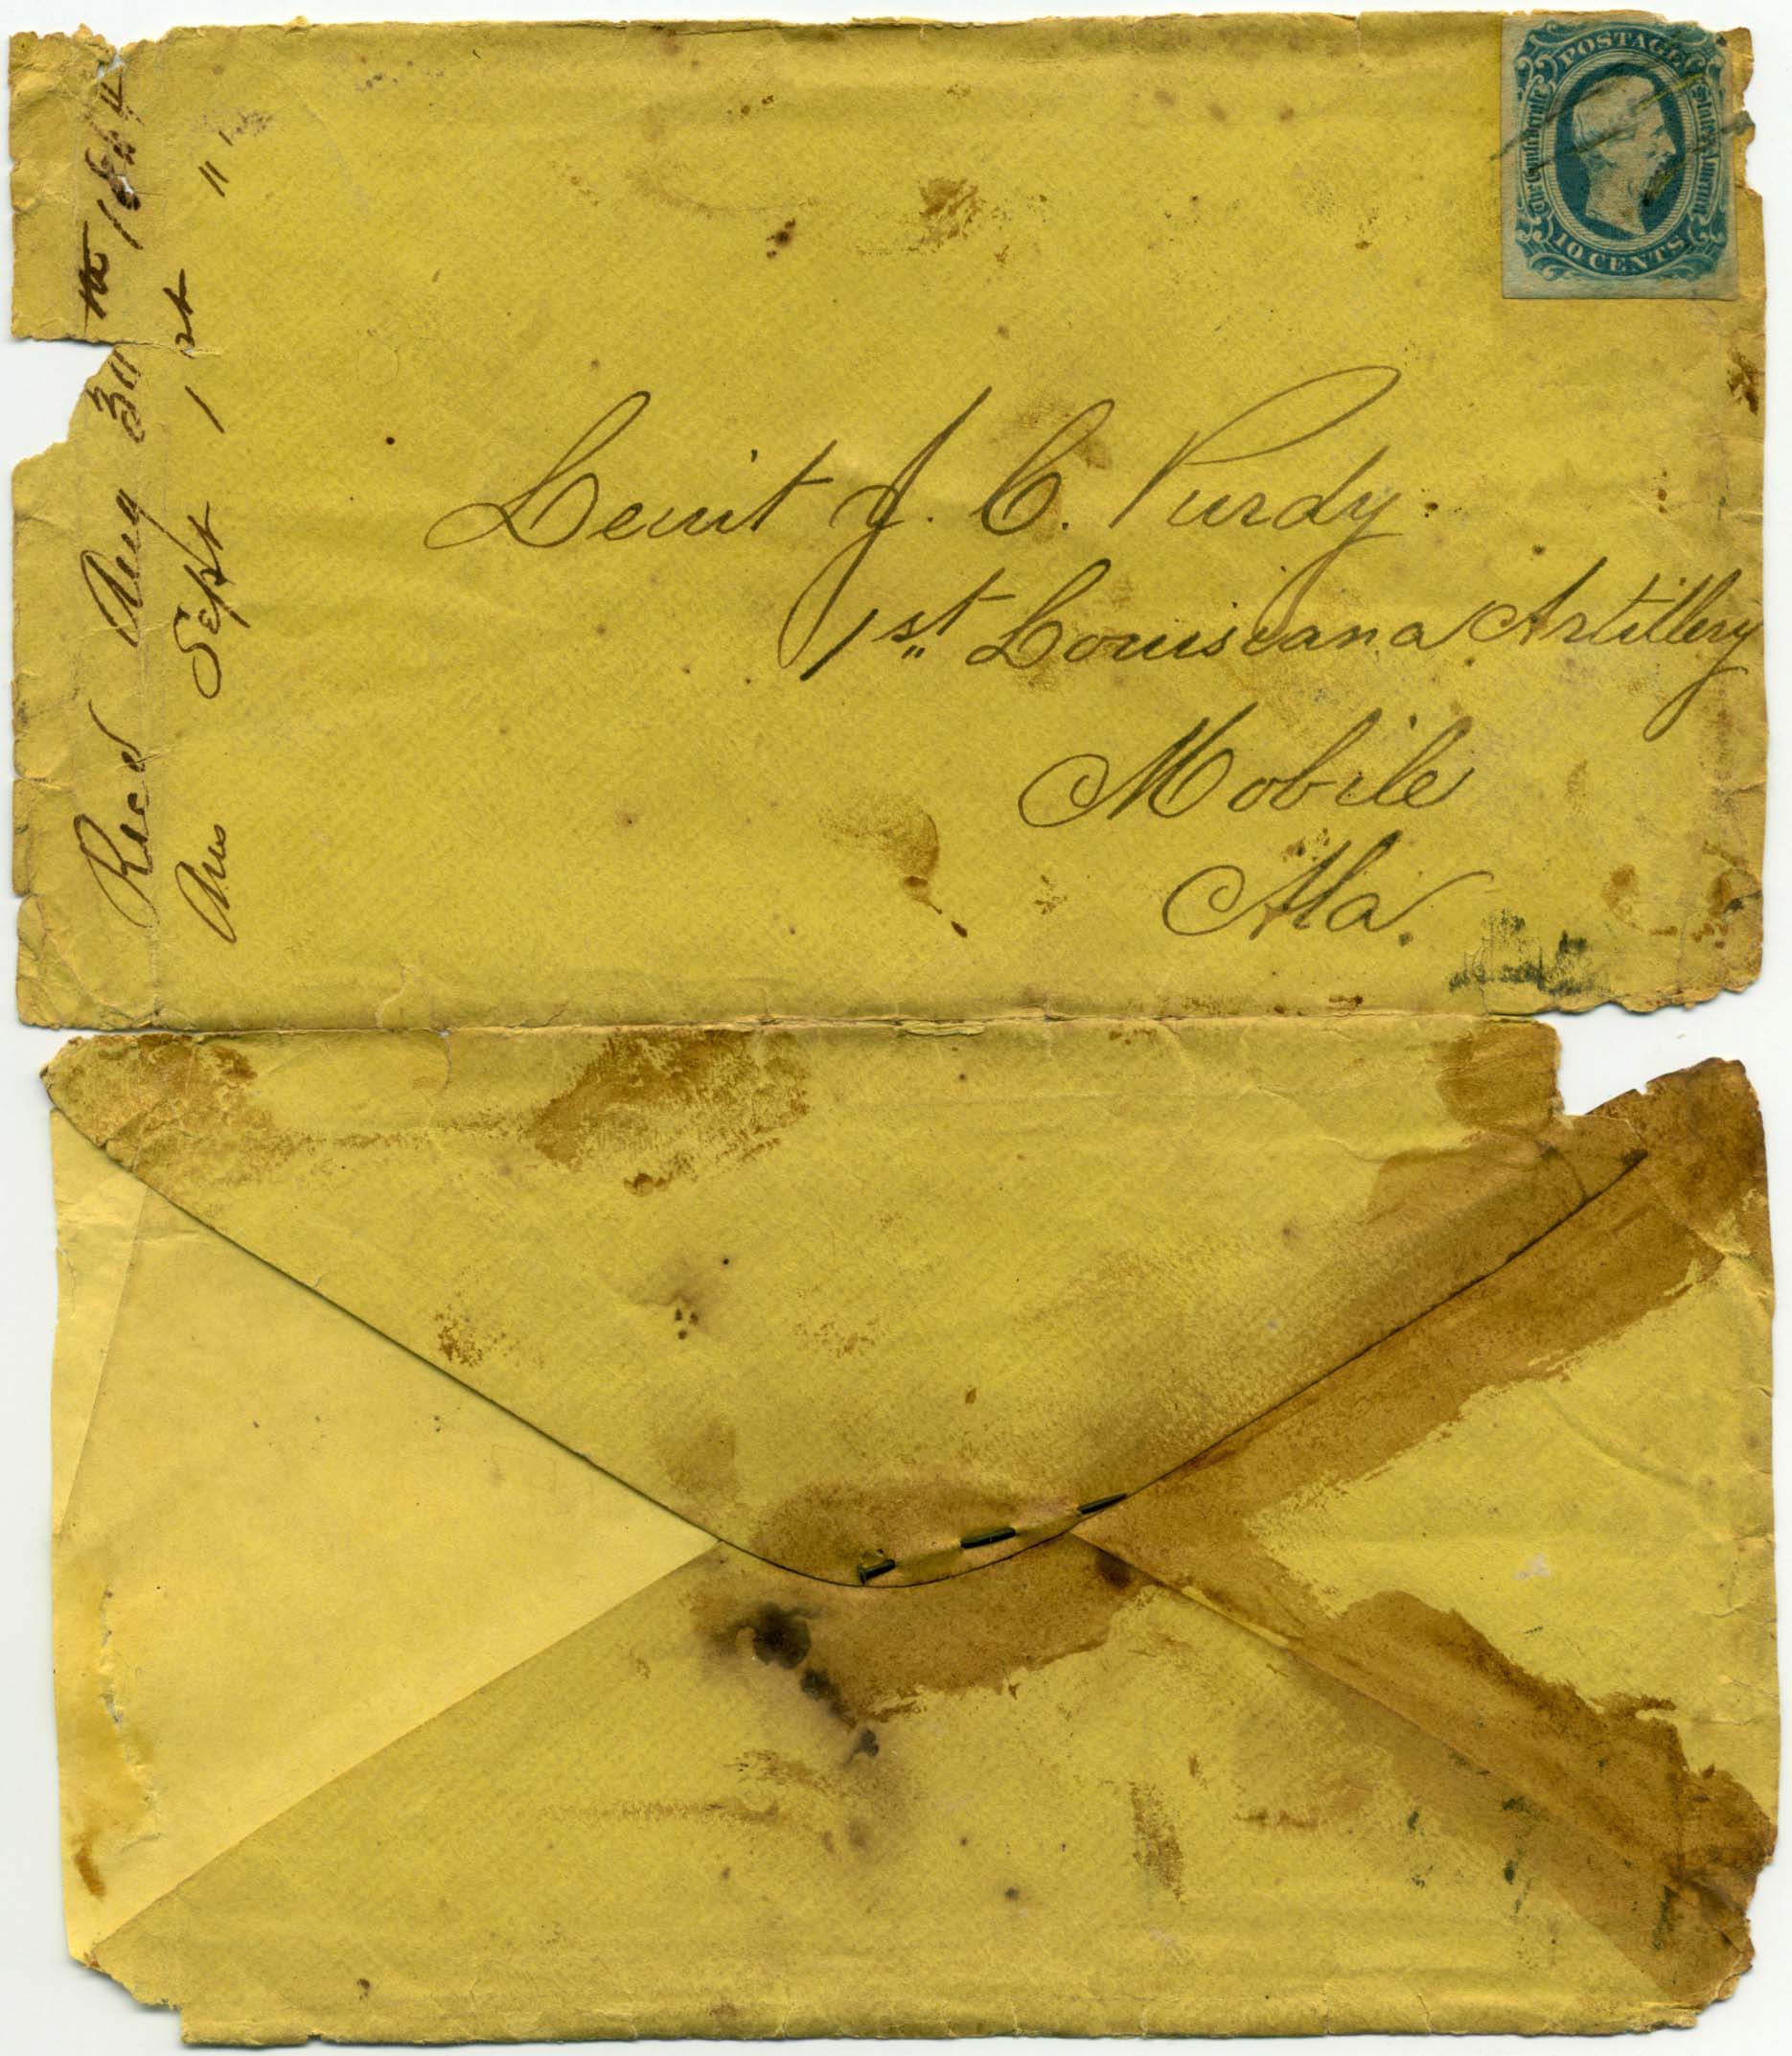 POSTAGE
The Confederate States of America
10 CENTS
Recd Aug 30 th 1864
Ans Sept 1st "
Leuit J. C. Purdy.
1st Louisiana Artillery
Mobile
Ala.